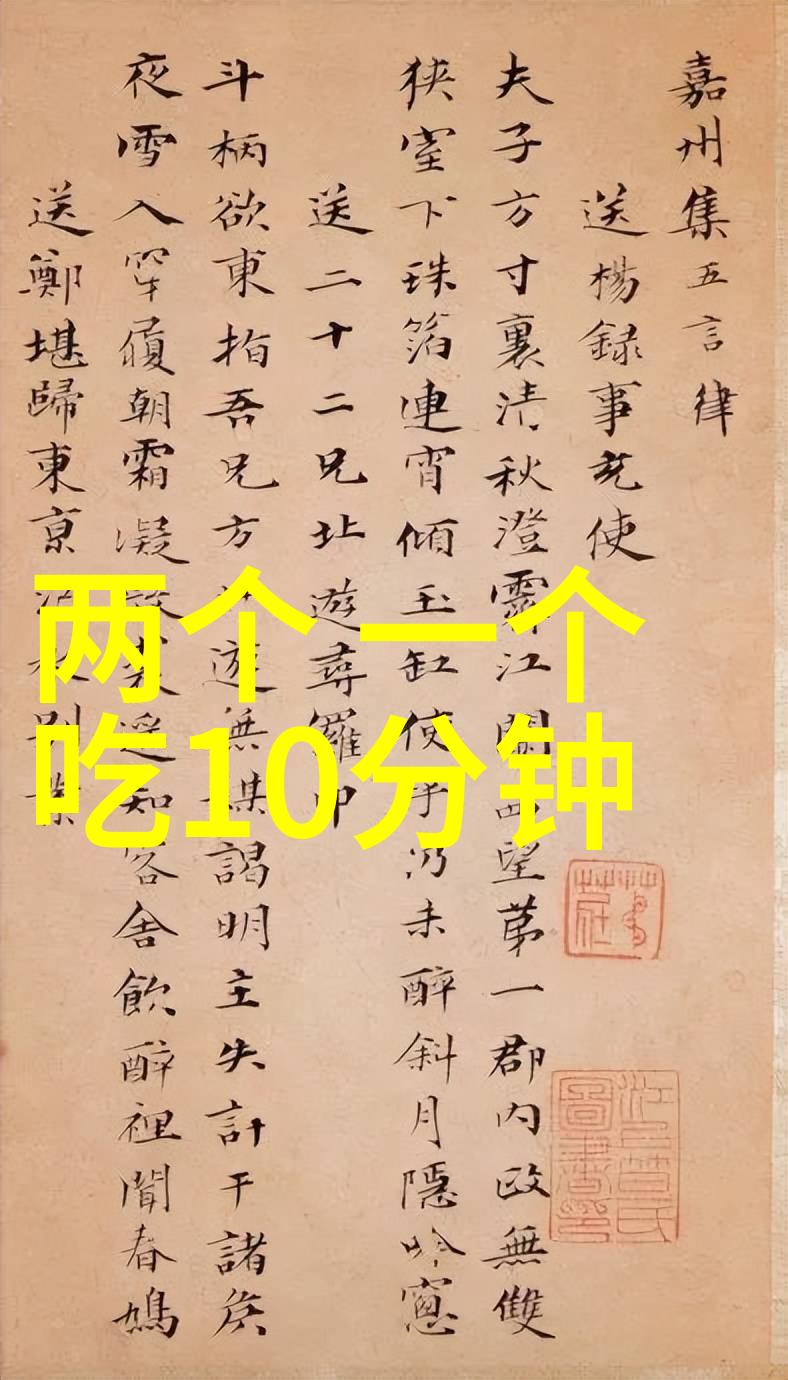 嘉州集五言律
送楊録事充使
夫子方寸裏清秋澄霽江關西望第一郡内政無雙
狹室下珠箔連宵傾玉缸使乎仍未醉斜月隱吟窻
送二十二兄北遊尋羅中
斗柄欲東指吾兄方北遊無媒謁明主失計干諸侯
夜雪入穿履朝霜凝敝裘遥知客舍飲醉裡聞春鳩
送鄭堪歸東京汜水別業
两个一个
吃10分钟